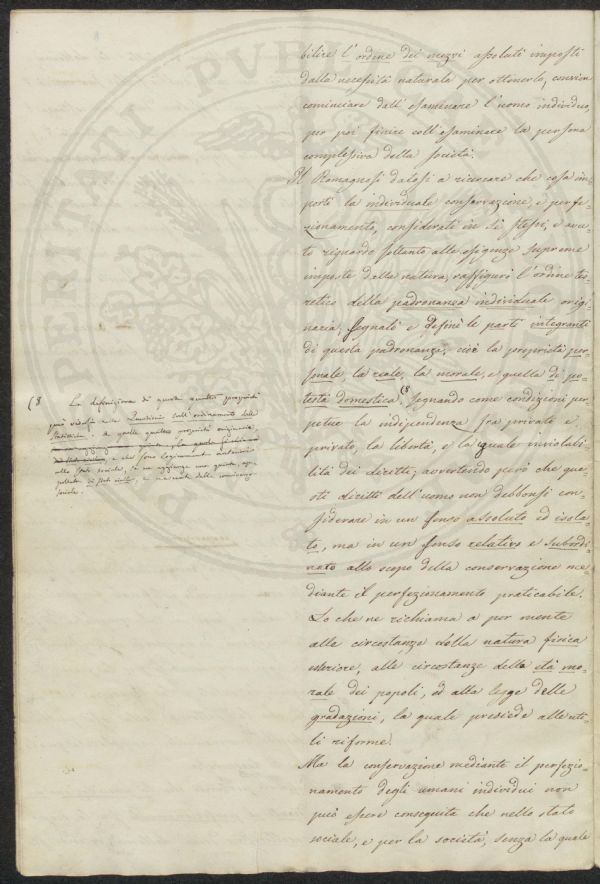 bilire l'ordine dei mezzi assoluti imposti
dalla necessità naturale per ottenerlo, convien
cominciare dall'esaminare l'uomo individuo,
per poi finire coll'esaminare la persona
complessiva della società.
Il Romagnosi dalosi a ricercare che cosa im-
porti la individuale conservazione, e perfe-
zionamento, considerati in sè stessi, e avu-
to riguardo soltanto alle esigenze supreme
imposte dalla natura, raffigurò l'ordine teo-
retico della padronanza individuale origi-
naria, segnalò e definì le parti integranti
di questa padronanza, cioè la proprietà per-
sonale la reale, la morale, e quella di po-
testà domestica, (8 segnando come condizioni per-
petue la indipendenza fra privato e
privato, la libertà, e la eguale inviolabi-
lità dei diritti; avvertendo però che que-
sti diritti dell'uomo non debbonsi con-
siderare in un senso assoluto ed isola-
to, ma in un senso relativo e subordi-
nato allo scopo della conservazione me-
diante il perfezionamento praticabile.
Lo che ne richiama a por mente
alle circostanze della natura fisica
esteriore, alle circostanze della età mo-
rale dei popoli, ed alla legge delle
gradazioni, la quale presiede alle uti-
li riforme.
Ma la conservazione mediante il perfezio-
namento degli umani individui non
può essere conseguita che nello stato
sociale, e per la società, senza la quale
(8 La definizione di queste quattro proprietà
può vedersi nelle Questioni sull'ordinamento delle
Statistiche. A quelle quattro proprietà originarie,
e che sono logicamente anteriori
allo stato sociale, se ne aggiunge una quinta, ap-
pellata di stato civile, e nascente dalla convivenza
sociale.
PVBLICAE